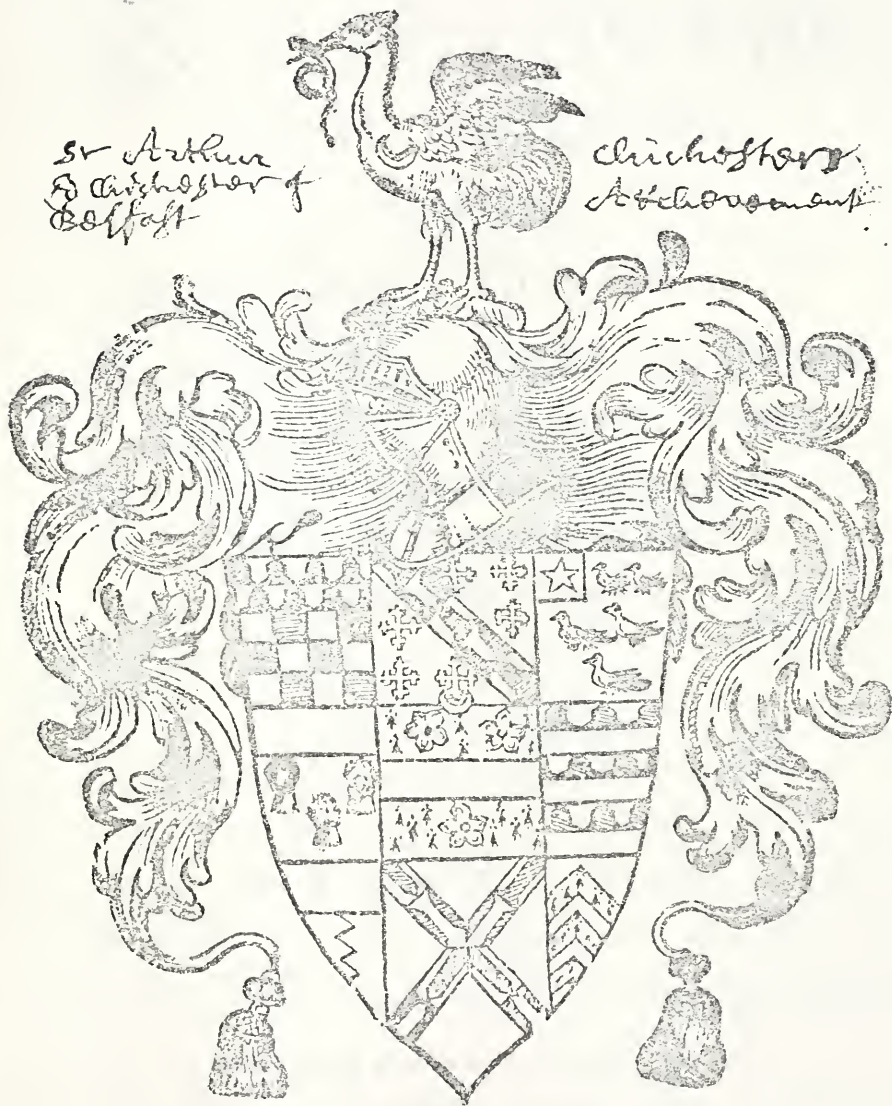 Sr Arthur
Chichester of
Belfast
Chichesters
Atchevement